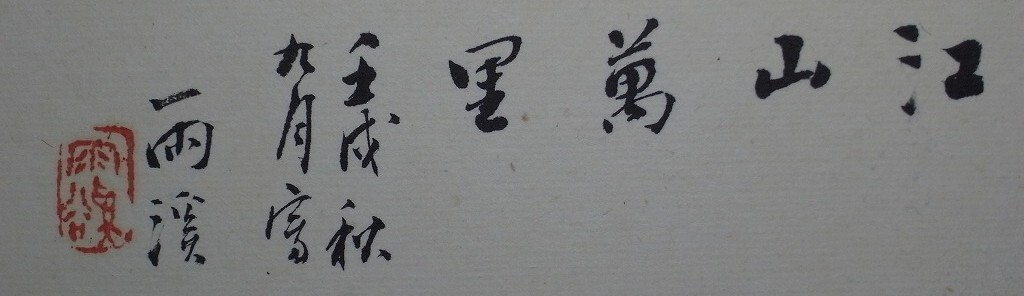 江山萬里
壬戌秋
九月寫
雨溪